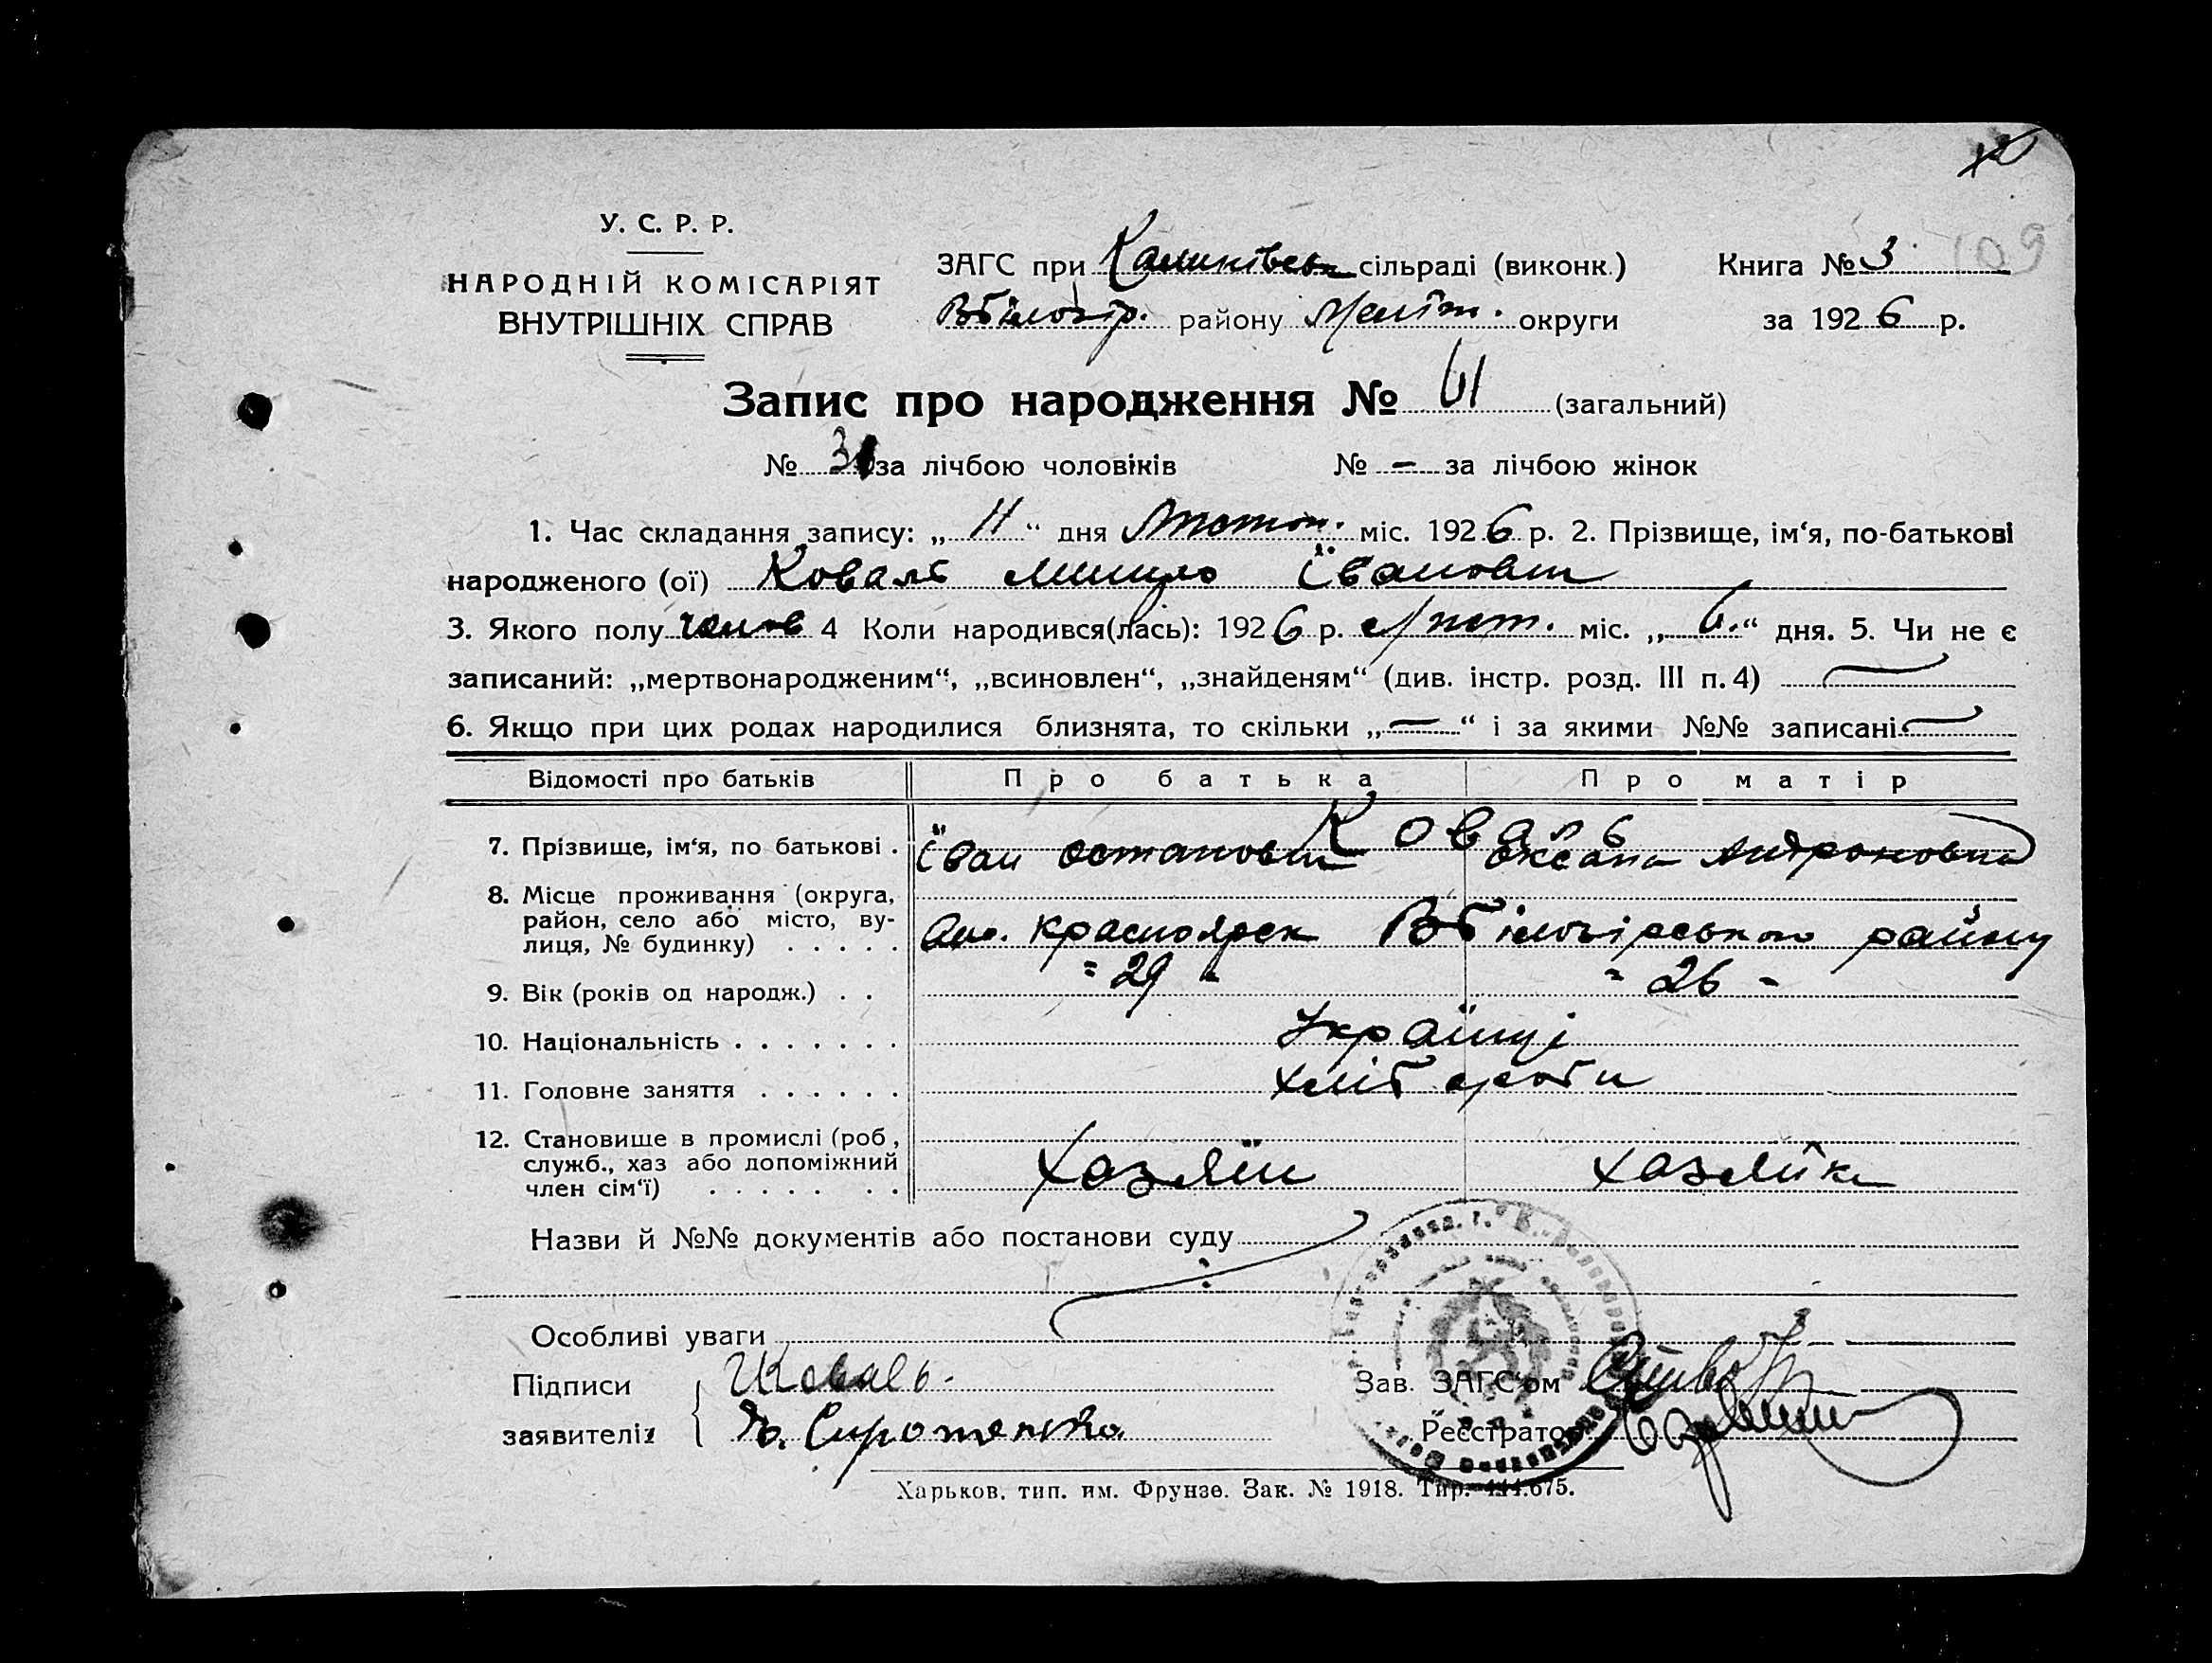 109
У. С. Р. Р.
НАРОДНІЙ КОМІСАРІЯТ
ВНУТРІШНІХ СПРАВ
ЗАГС при сільраді (виконк.)
Вбілозір. району Меліт. округи
Книга № 3
за 1926 р.
Запис про народження № 61 (загальний)
№ 31 за лічбою чоловіків № — за лічбою жінок
1. Час складання запису: „ 11 “ дня міс. 1926 р. 2. Прізвище, ім‘я, по-батькові
народженого (ої) Коваль Іванович
3. Якого полу чолов 4 Коли народився(лась): 1926 р. Лист. міс. „ 6. “ дня. 5. Чи не є
записаний: „мертвонародженим“, „всиновлен“, „знайденям“ (див. інстр. розд. III п. 4) —
6. Якщо при цих родах народилися близнята, то скільки „ — “ і за якими №№ записані —
Відомості про батьків Про батька Про матір
7. Прізвище, ім‘я, по батькові . Коваль
Їван Остапович Оксана Андроновна
8. Місце проживання (округа,
район, село або місто, ву-
лиця, № будинку) . . . . . Красноярск Вбілозірського району
9. Вік (років од народж.) . . 29 26
10. Національність . . . . . . . Українці
11. Головне заняття . . . . . . Хлібороби
12. Становище в промислі (роб,
служб., хаз або допоміжний
член сім‘ї) . . . . . . . Хазяїн Хазяйка
Назви й №№ документів або постанови суду
Особливі уваги
Підписи Коваль.
заявителів Сиротенко
Зав. ЗАГС‘ом
Реєстратор
Харьков, тип. им. Фрунзе. Зак. № 1918. Тир. 444.675.